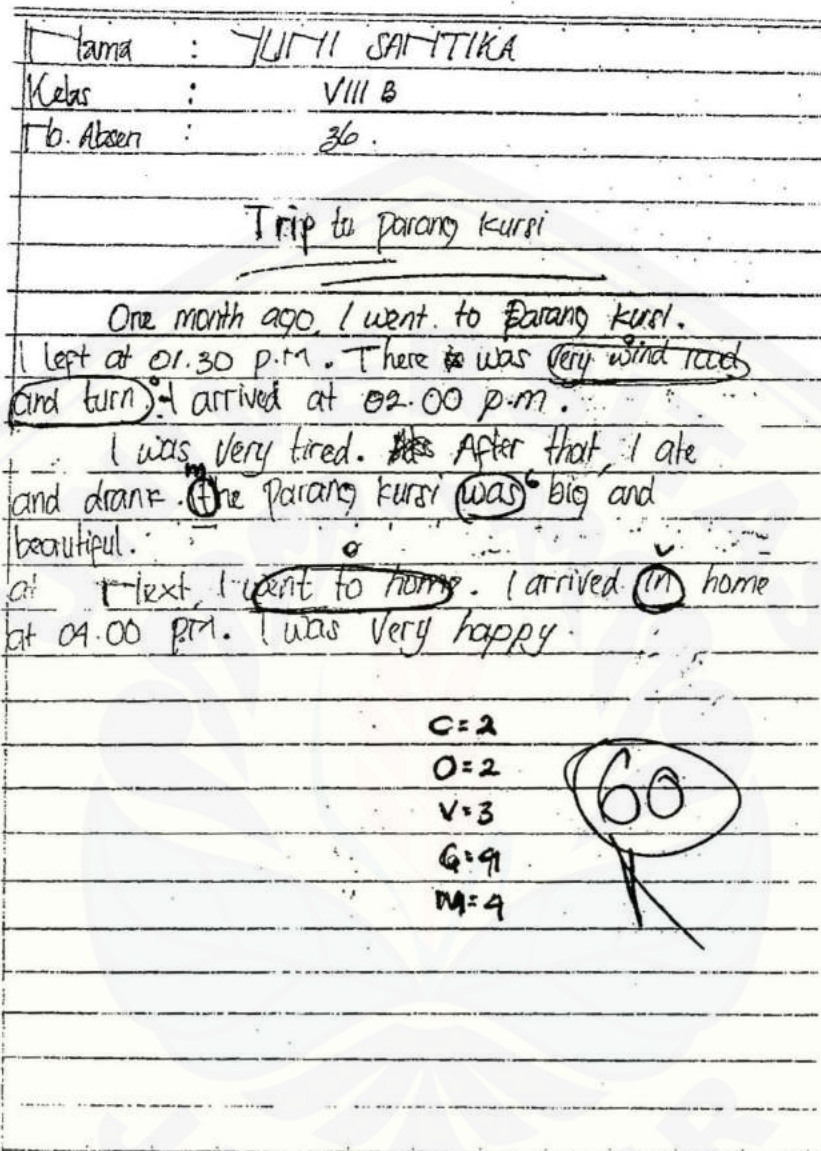 Nama : YUNI SANTIKA
Kelas : VIII B
No. Absen : 36.
Trip to parang kursi
One month ago, I went to Parang kursi.
I left at 01.30 p.m. There was very wind road
o
and turn. I arrived at 02.00 p.m.
I was very tired. After that, I ate
m
and drank. the parang kursi was G big and
beautiful.
o v
at Next, I went to home. I arrived in home
at 04.00 p.m. I was very happy.
C = 2
O = 2
V = 3
G = 4
M = 4
60